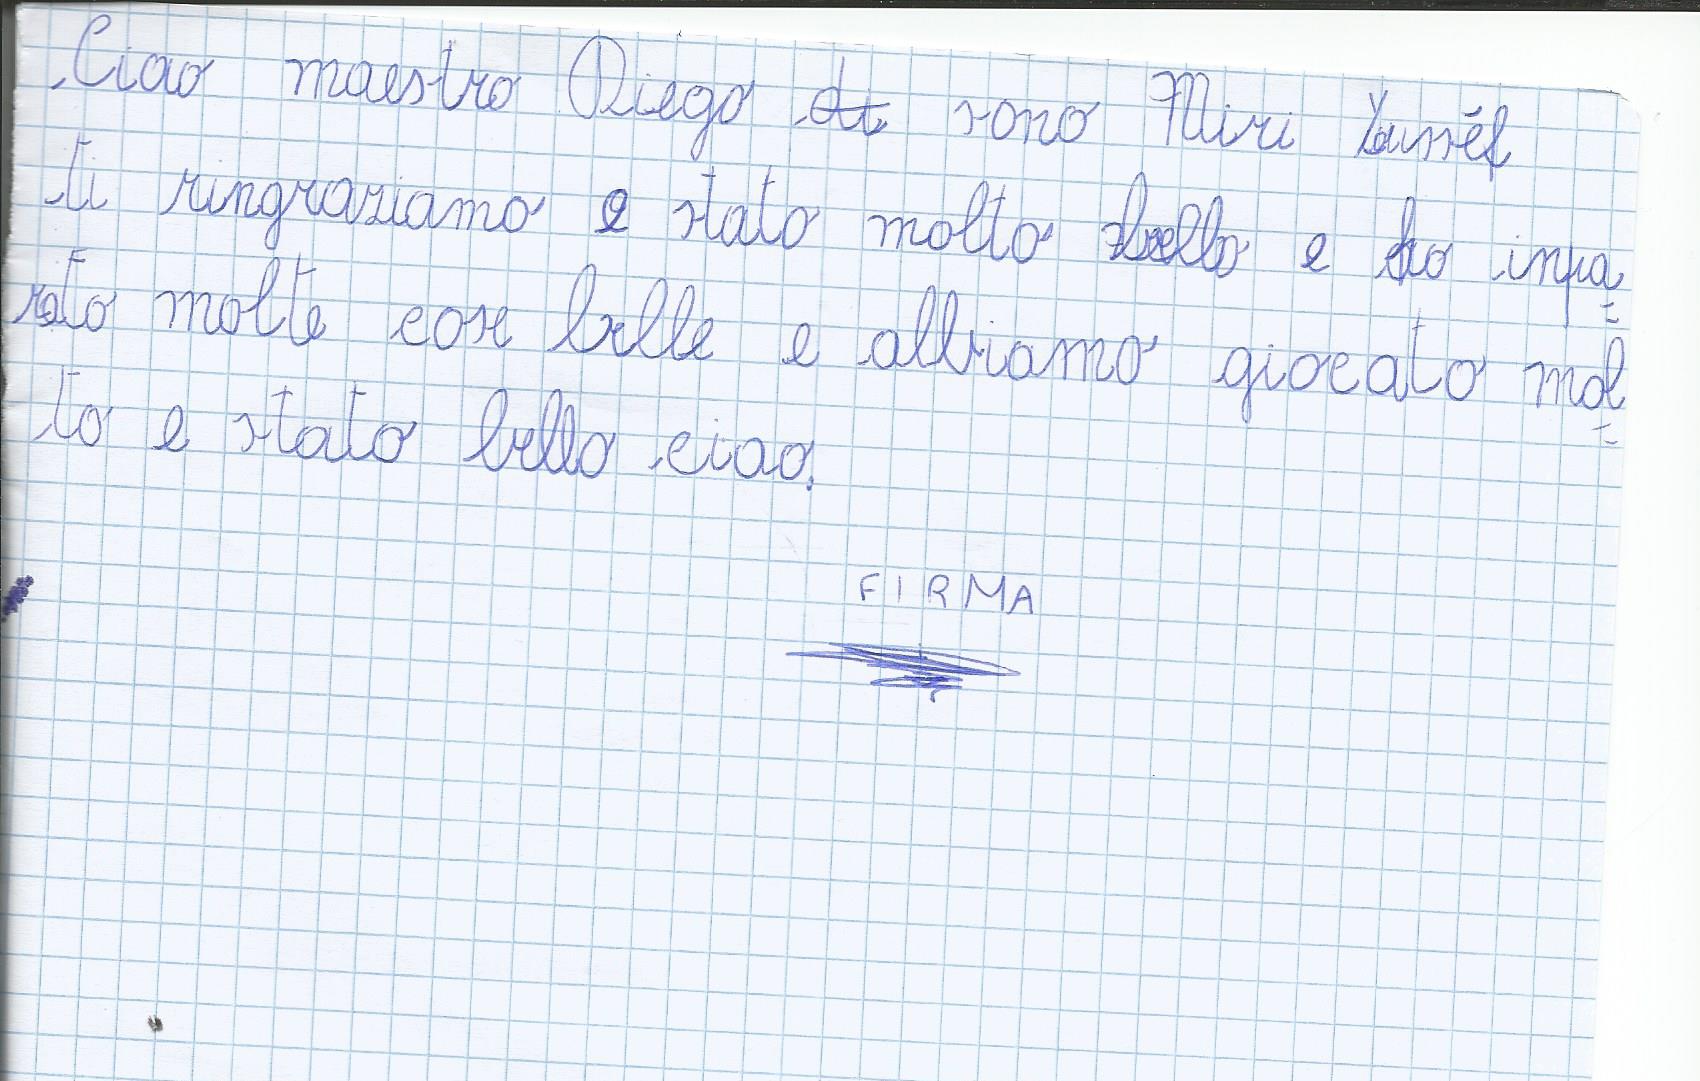 Ciao maestro Diego sono Miri
ti ringraziamo e stato molto bello e ho inpa=
rato molte cose belle e abbiamo giocato mol=
to e stato bello ciao.
FIRMA